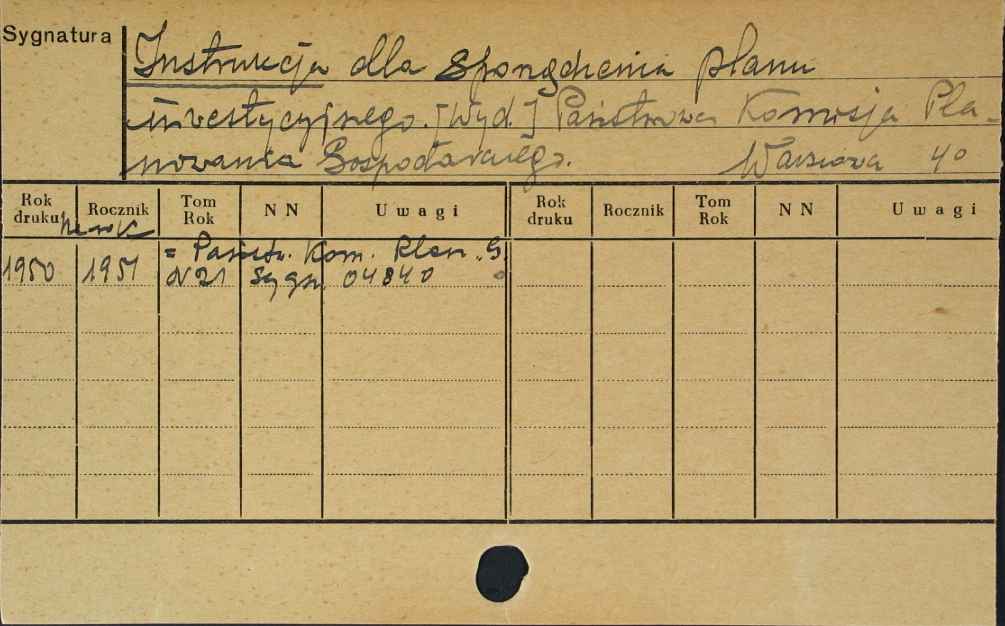 Sygnatura
Instrukcja dla sporządzenia planu
inwestycyjnego. [Wyd.] Państwowa Komisja Pla-
nowania Gospodarczego. Warszawa 40
Rok druku Rocznik Tom Rok NN Uwagi Rok druku Rocznik Tom Rok NN Uwagi
na rok = Państw. Kom. Plan. G.
1950 1951 N21 Sygn. 04840